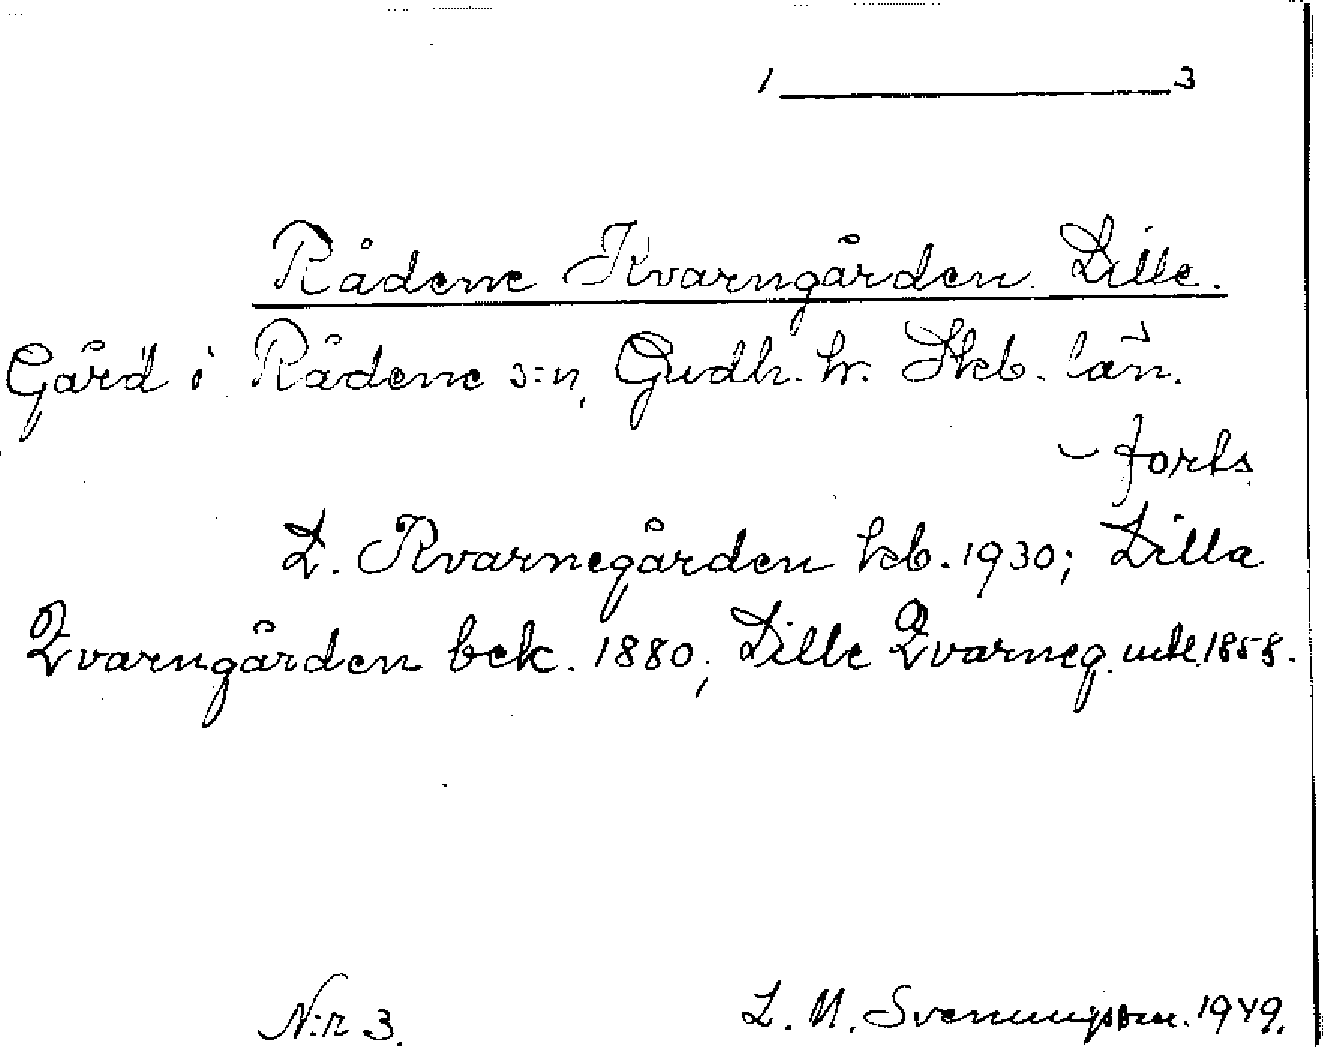 1 3
Rådene Kvarngården. Lille.
Gård i Rådene s:n, Gudh. hr. Skb. län.
- forts
L. Kvarnegården hcb. 1930; Lilla
Qvarngården bek. 1880; Lille Qvarneg. 1858.
N:r 3. L. M. Svenungsson. 1949.